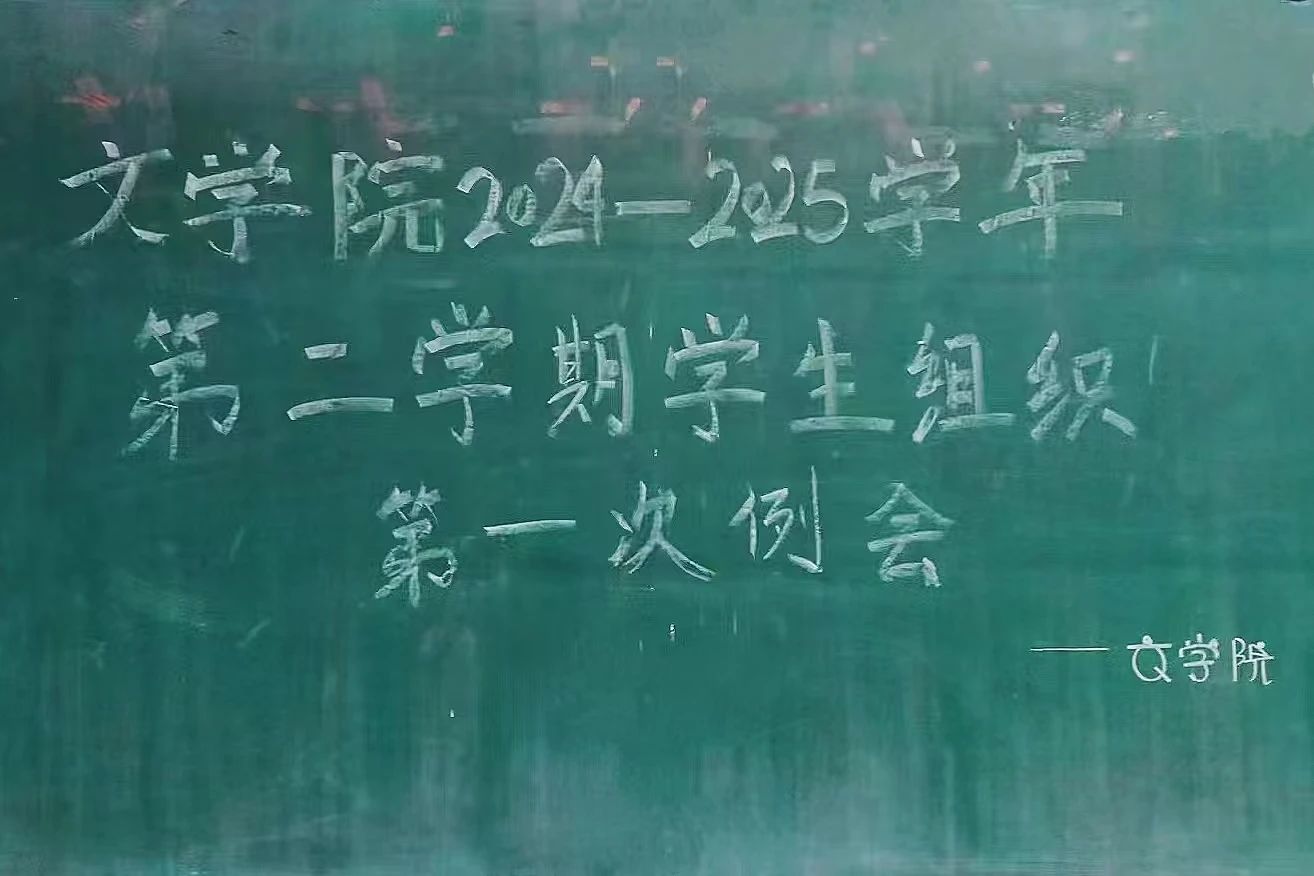 文学院2024-2025学年
第二学期学生组织
第一次例会
——文学院